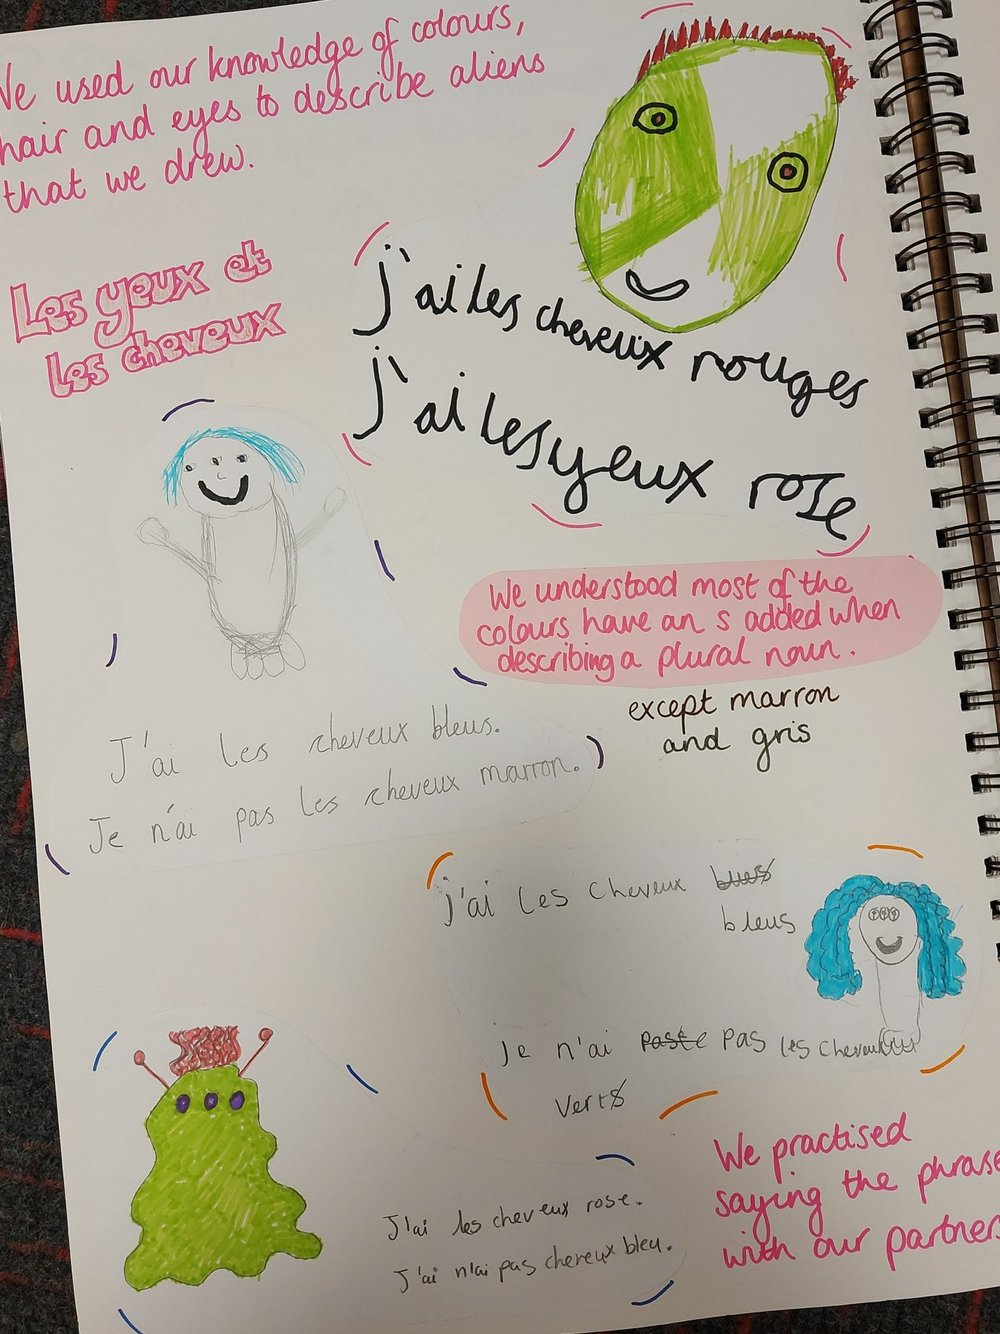 We used our knowledge of colours,
hair and eyes to describe aliens
that we drew.
Les yeux et
les cheveux
j'ai les cheveux rouges
j'ai les yeux rose
We understood most of the
colours have an s added when
describing a plural noun.
except marron
and gris
J'ai les cheveux bleus.
Je n'ai pas les cheveux marron.
j'ai les cheveux blues
bleus
je n'ai paste pas les cheveux
verts
J'ai les cheveux rose.
J'ai n'ai pas cheveux bleu.
We practised
saying the phrase
with our partners